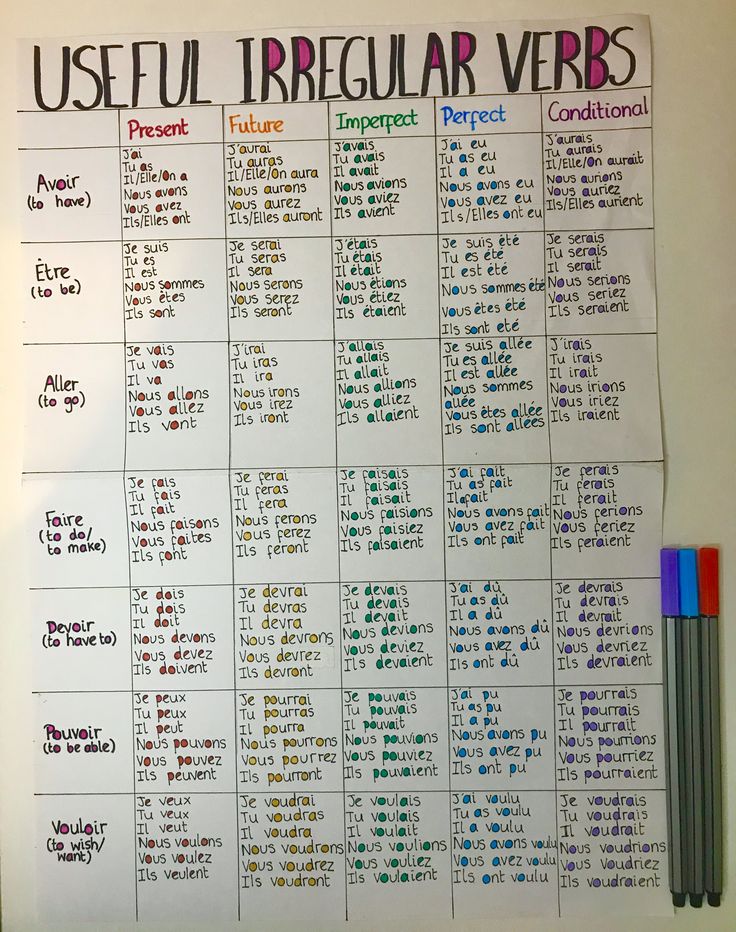 USEFUL IRREGULAR VERBS
Present
Future
Imperfect
Perfect
Conditional
Avoir
(to have)
J'ai
Tu as
Il/Elle/On a
Nous avons
Vous avez
Ils/Elles ont
J'aurai
Tu auras
Il/Elle/On aura
Nous aurons
Vous aurez
Ils/Elles auront
J'avais
Tu avais
Il avait
Nous avions
Vous aviez
Ils avient
J'ai eu
Tu as eu
Il a eu
Nous avons eu
Vous avez eu
Ils/Elles ont eu
J'aurais
Tu aurais
Il/Elle/On aurait
Nous aurions
Vous auriez
Ils/Elles aurient
Être
(to be)
Je suis
Tu es
Il est
Nous sommes
Vous êtes
Ils sont
Je serai
Tu seras
Il sera
Nous serons
Vous serez
Ils seront
J'étais
Tu étais
Il était
Nous étions
Vous étiez
Ils étaient
Je suis été
Tu es été
Il est été
Nous sommes été
Vous êtes été
Ils sont eté
Je serais
Tu serais
Il serait
Nous serions
Vous seriez
Ils seraient
Aller
(to go)
Je vais
Tu vas
Il va
Nous allons
Vous allez
Ils vont
J'irai
Tu iras
Il ira
Nous irons
Vous irez
Ils iront
J'allais
Tu allais
Il allait
Nous allions
Vous alliez
Ils allaient
Je suis allée
Tu es allée
Il est allée
Nous sommes
allée
Vous êtes allée
Ils sont allées
J'irais
Tu irais
Il irait
Nous irions
Vous iriez
Ils iraient
Faire
(to do/
to make)
Je fais
Tu fais
Il fait
Nous faisons
Vous faites
Ils font
Je ferai
Tu feras
Il fera
Nous ferons
Vous ferez
Ils feront
Je faisais
Tu faisais
Il faisait
Nous faisions
Vous faisiez
Ils faisaient
J'ai fait
Tu as fait
Il a fait
Nous avons fait
Vous avez fait
Ils ont fait
Je ferais
Tu ferais
Il ferait
Nous ferions
Vous feriez
Ils feraient
Devoir
(to have to)
Je dois
Tu dois
Il doit
Nous devons
Vous devez
Ils doivent
Je devrai
Tu devras
Il devra
Nous devrons
Vous devrez
Ils devront
Je devais
Tu devais
Il devait
Nous devions
Vous deviez
Ils devaient
J'ai dû
Tu as dû
Il a dû
Nous avons dû
Vous avez dû
Ils ont dû
Je devrais
Tu devrais
Il devrait
Nous devrions
Vous devriez
Ils devraient
Pouvoir
(to be able)
Je peux
Tu peux
Il peut
Nous pouvons
Vous pouvez
Ils peuvent
Je pourrai
Tu pourras
Il pourra
Nous pourrons
Vous pourrez
Ils pourront
Je pouvais
Tu pouvais
Il pouvait
Nous pouvions
Vous pouviez
Ils pouvaient
J'ai pu
Tu as pu
Il a pu
Nous avons pu
Vous avez pu
Ils ont pu
Je pourrais
Tu pourrais
Il pourrait
Nous pourrions
Vous pourriez
Ils pourraient
Vouloir
(to wish/
want)
Je veux
Tu veux
Il veut
Nous voulons
Vous voulez
Ils veulent
Je voudrai
Tu voudras
Il voudra
Nous voudrons
Vous voudrez
Ils voudront
Je voulais
Tu voulais
Il voulait
Nous voulions
Vous vouliez
Ils voulaient
J'ai voulu
Tu as voulu
Il a voulu
Nous avons voulu
Vous avez voulu
Ils ont voulu
Je voudrais
Tu voudrais
Il voudrait
Nous voudrions
Vous voudriez
Ils voudraient